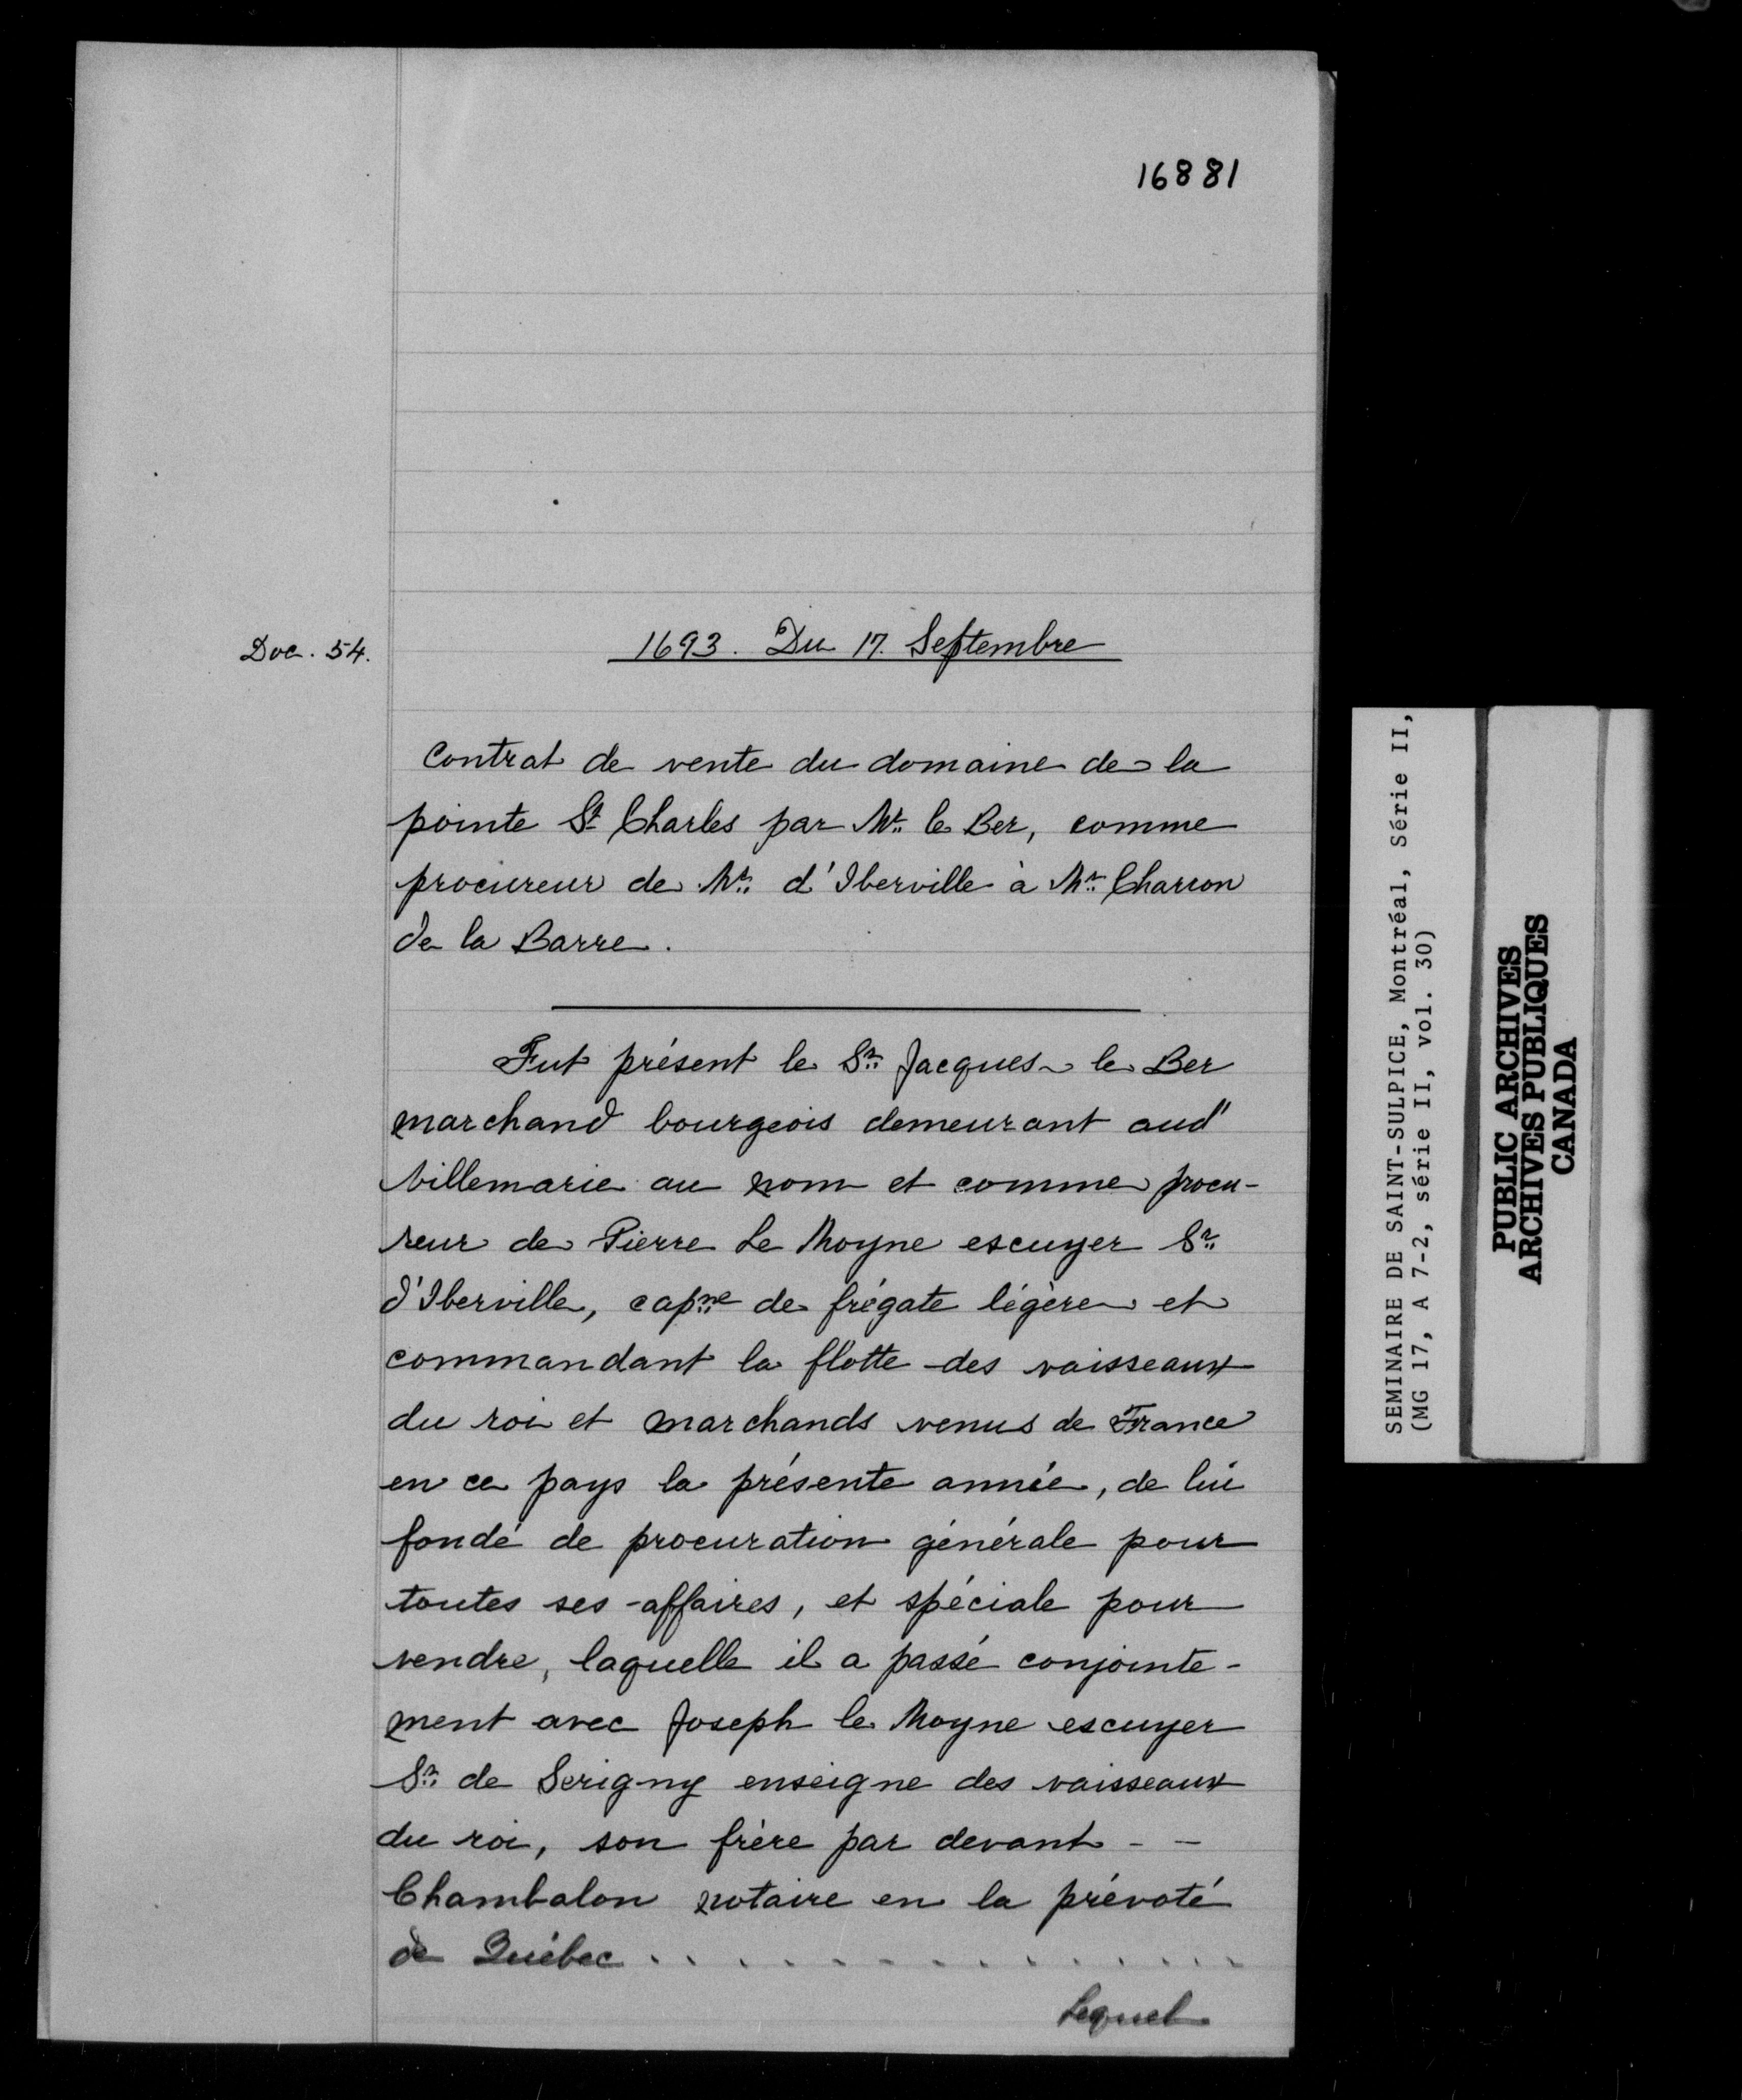 16881
Doc. 54.
1693. Du 17. Septembre
Contrat de vente du domaine de la
pointe St Charles par Mr. le Ber, comme
procureur de Mr. d'Iberville à Mr. Charron
de la Barre.
Fut présent le Sr. Jacques le Ber
marchand bourgeois demeurant aud'
Villemarie au nom et comme procu-
reur de Pierre Le Moyne escuyer Sr.
d'Iberville, capne de frégate légère et
commandant la flotte des vaisseaux
du roi et marchands venus de France
en ce pays la présente année, de lui
fondé de procuration générale pour
toutes ses affaires, et spéciale pour
vendre, laquelle il a passé conjointe-
ment avec Joseph le Moyne escuyer
Sr. de Serigny enseigne des vaisseaux
du roi, son frère par devant - -
Chambalon notaire en la prévoté
de Québec . . . . . . . . . . . . . . .
Lequel
SEMINAIRE DE SAINT-SULPICE, Montréal, Série II,
(MG 17, A 7-2, série II, vol. 30)
PUBLIC ARCHIVES
ARCHIVES PUBLIQUES
CANADA